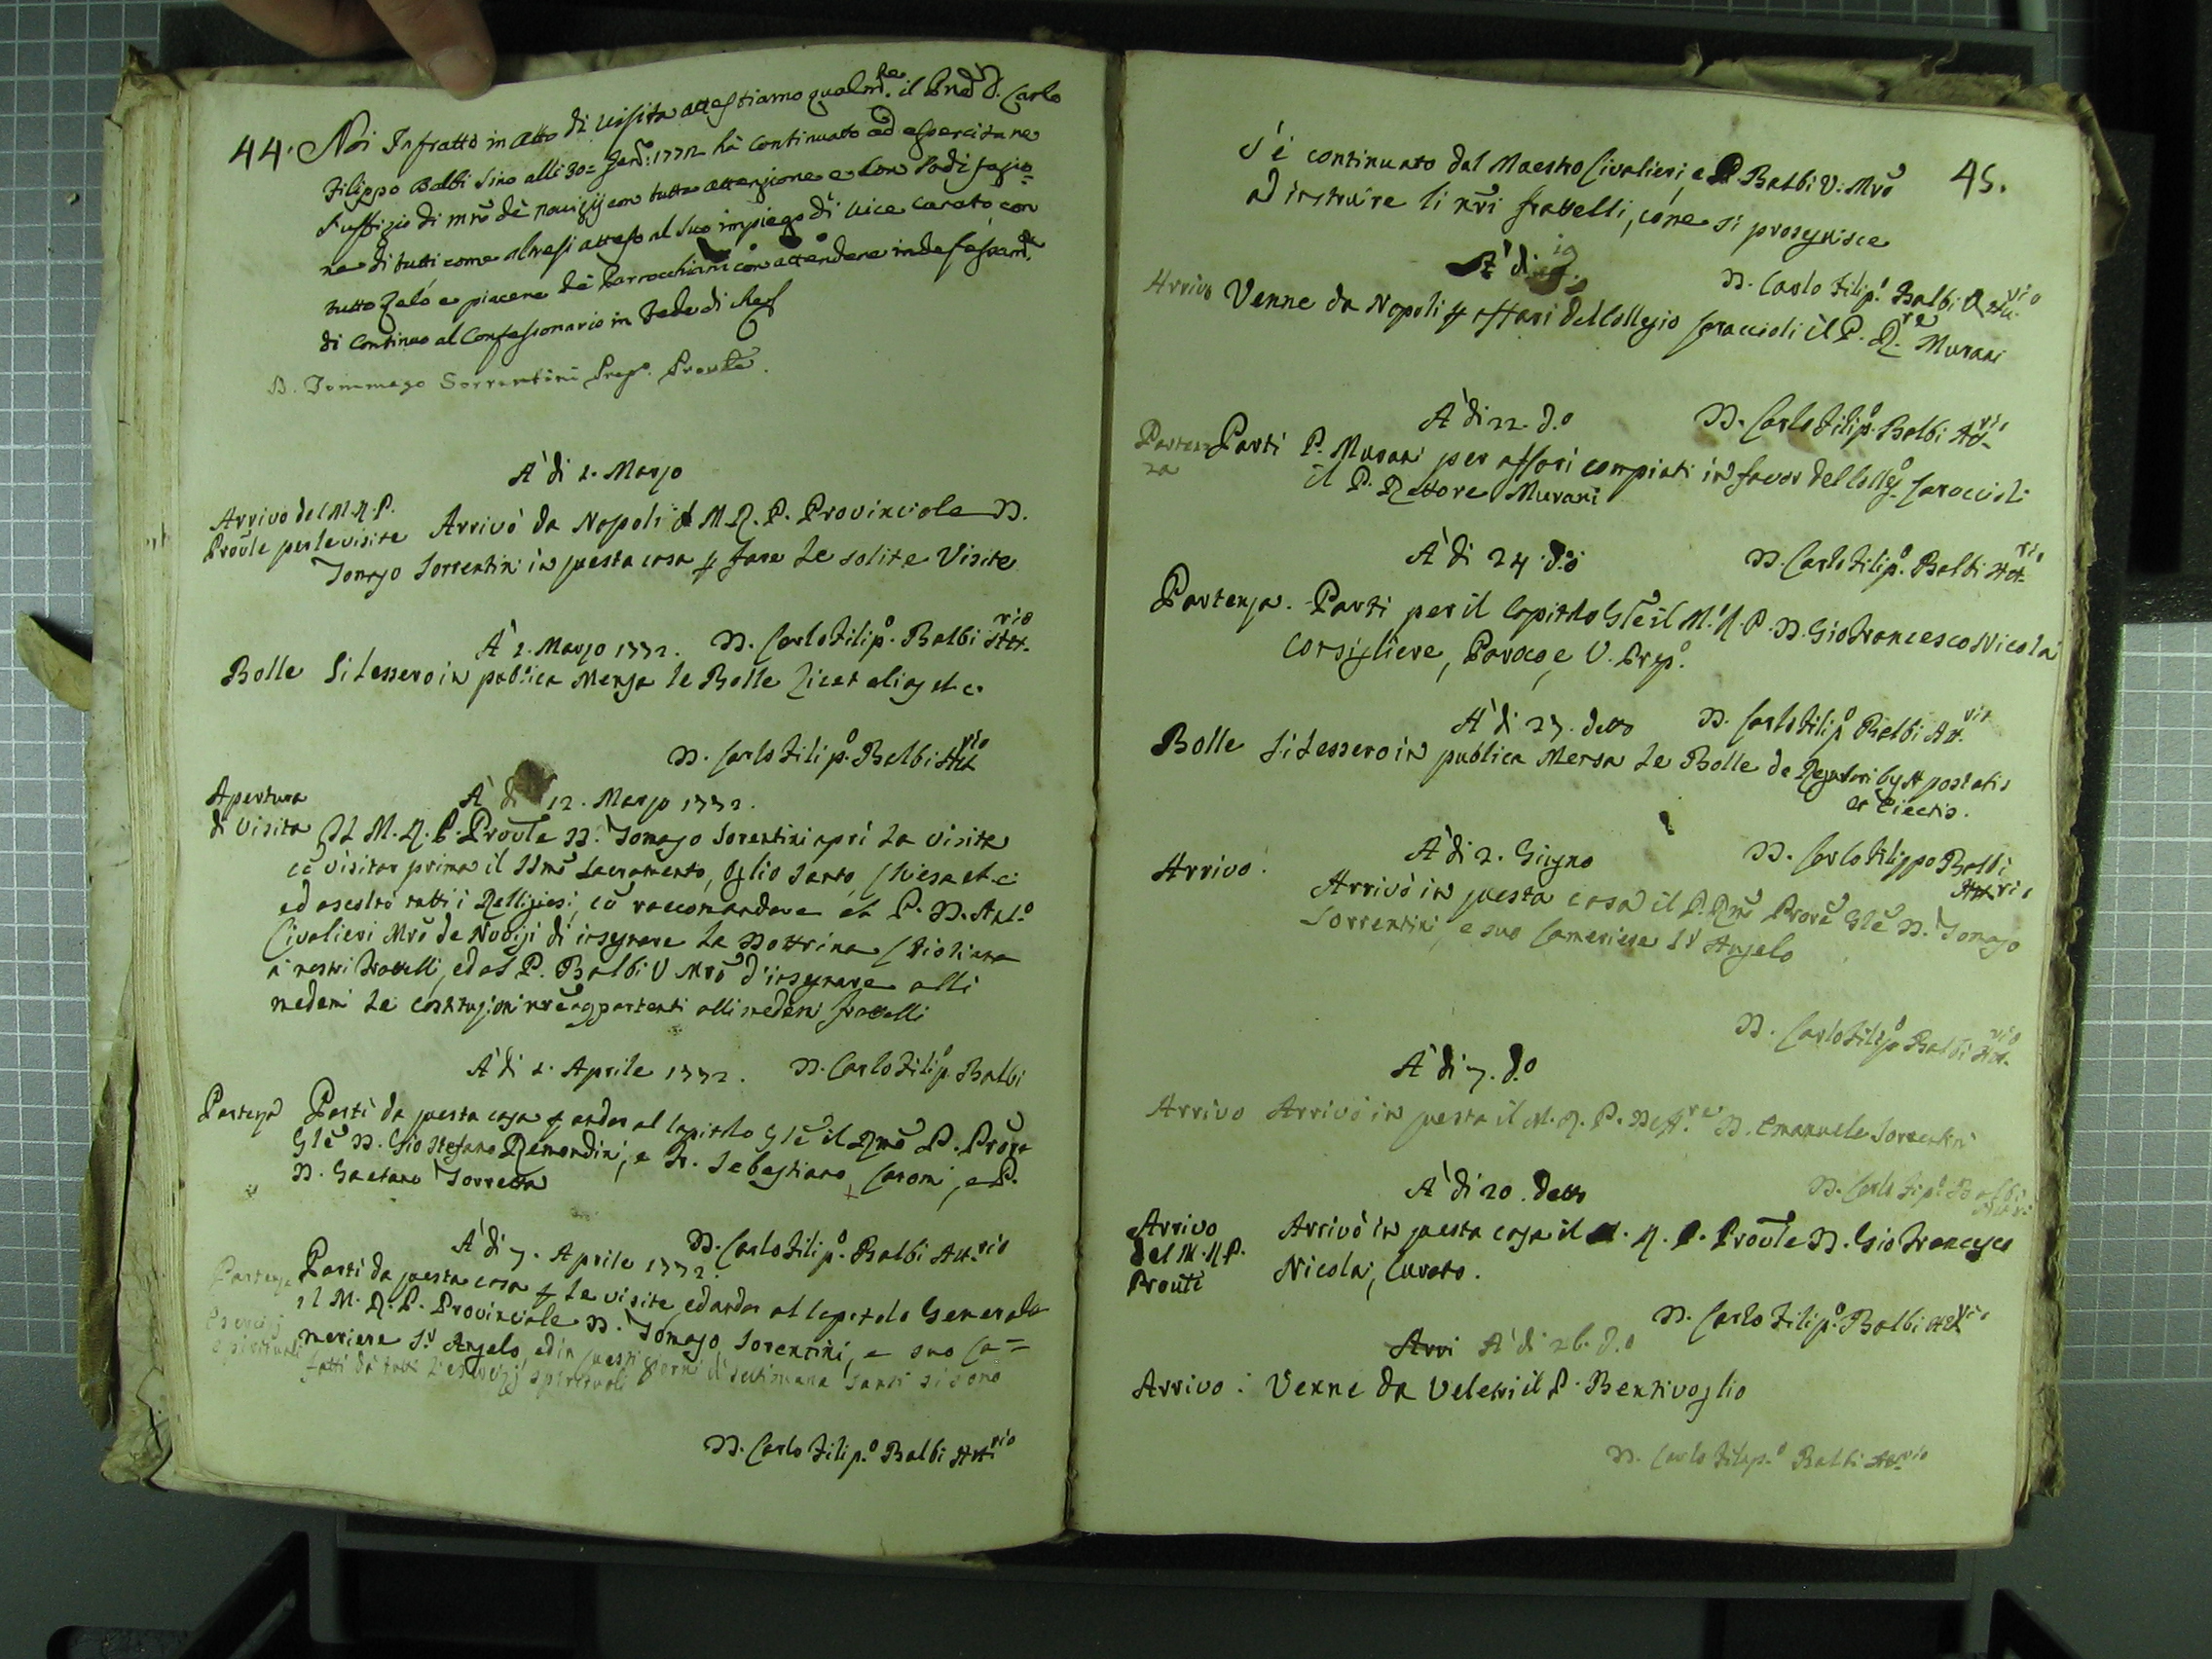 44. Noi Infratto in atto di visita attestiamo qualmte. il Pred. D. Carlo
Filippo Balbi sino alli 30= : 1772 hà continuato ad esercitare
l'uffizio di mrõ dè novizij con tutta attenzione e con sodisfazio=
ne di tutti come altresi atteso al suo impiego di vice curato, con
tutto zelo e piacere dè Parrocchiani con attendere indefessamte.
di continuo al Confessionario in fede di che
D. Tommaso Sorrentini Prepo. Prouĩle.
A' di 2. Marzo
Arrivo del M.R.P.
Prouĩle per le visite
Arrivò da Napoli il M.R.P. Provinciale D.
Tomaso Sorrentini in questa casa p fare le solite Visite
A' 2. Marzo 1772. D. Carlo Filipo. Balbi Att.rio
Bolle Si lessero in publica Mensa le Bolle Licet alias et c.
D. Carlo Filipo. Balbi Att.rio
A' di 12. Marzo 1772.
Apertura
di Visita
Il M.R.P. Prouĩle D. Tomaso Sorentini aprì la visita
cõ visitar prima il SSmõ Sacramento, Oglio Santo Chiesa et c:
ed ascoltò tutti i Relligiosi, cõ raccomandare al P. D. Ant.o
Civalieri Mrõ de Novizi di insegnare la Dottrina Cristiana
a' nostri fratelli, ed al P. Balbi V. Mrõ d'insegnare alli
medemi le costituzioni nrẽ appartenti alli medemi fratelli
A' di 2. Aprile 1772. D. Carlo Filip. Balbi
Partenza Partì da questa casa p andar al Capitolo Glẽ il Rmõ P. Prõre
Glẽ D. Gio Stefano Remondini, e Fr. Sebastiano Caroni, e P.
D. Gaetano Torretta
A' di 7. Aprile 1772. D. Carlo Filipo. Balbi Att.rio
Partenza Partì da questa casa p le visite, ed andar al Capitolo Generale
il M.R.P. Provinciale D. Tomaso Sorentini, e suo Ca=
Esercizj
spirituali
meriere Sr. Angelo, ed in questi giorni di settimana santa si sono
fatti da tutti l'esercizj spirituali
D. Carlo Filipo. Balbi Att.rio
45.
S'è continuato dal Maestro Civalieri, e P. Balbi V. Mrõ
ad instruire li nrĩ fratelli, come si proseguisce
A' di 19 D. Carlo Filipo. Balbi Att.rio
Arrivo Venne da Napoli p affari del Collegio Caraccioli il P. R.re Murani
A' di 22. d.o D. Carlo Filipo. Balbi Att.rio
Parten
za
Partì P. Murani per affari compiati in favor del Collego. Caraccioli
il P. Rettore Murani
A' di 24 d.o D. Carlo Filipo. Balbi Att.rio
Partenza. Partì per il Capitolo Glẽ il M.R.P. D. Gio Francesco Nicolai
Consigliere, Paroco, e V. Prepo.
A' di 27. detto D. Carlo Filipo Balbi Att.rio
Bolle Si lessero in publica Mensa le Bolle de Apostatis
et Eiectis.
A' di 2. Giugno D. Carlo Filippo Balbi
Att.rio
Arrivo. Arrivò in questa casa il P. Rmõ Prorẽ Glẽ D. Tomaso
Sorrentini, e suo Cameriere Sr Angelo
D. Carlo Filipo Balbi Att.rio
A' di 7. d.o
Arrivo Arrivò in questa il M.R.P. D. Emanuele Sorrentini
A' di 20. detto D. Carlo Filipo. Balbi
Att.rio
Arrivo
del M.R.P.
Prouĩle
Arrivò in questa casa il M.R.P. Prouĩle D. Gio Francesco
Nicolai, Curato.
D. Carlo Filipo. Balbi Att.rio
Arri A' di 26. d.o
Arrivo: Venne da Veletri il P. Bentivoglio
D. Carlo Filipo. Balbi Att.rio